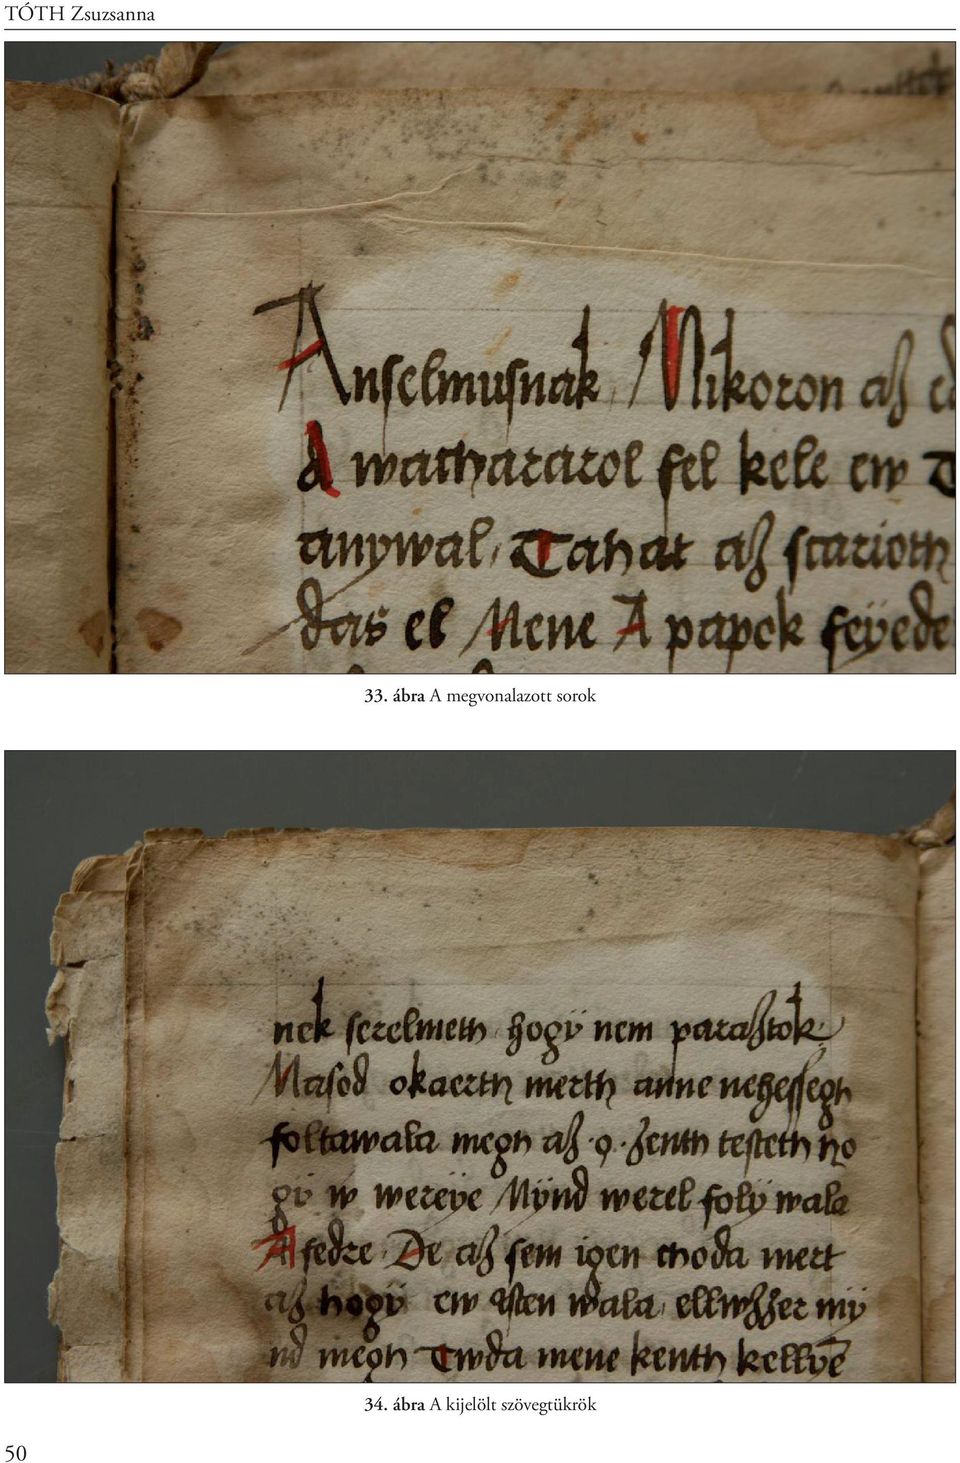 TÓTH Zsuzsanna
Anselmusnak Mikoron aȝ
A wachararol fel kele ew
anywal, Tahat aȝ scarioth
das el Mene A papok feÿede
33. ábra A megvonalazott sorok
nek ſerelmeth hogÿ nem paraȝtok
Maſod okaerth merth anne neheſſegh
foltawala megh aȝ ȝenth teſteth ho
gÿ w wereÿe Mÿnd werel folÿ wala
A fedre De aȝ ſem igen choda mert
aȝ hogÿ ew iſten wala, ellwȝȝer mÿ
nd megh Twda mene kenth kellÿē
34. ábra A kijelölt szövegtükrök
50